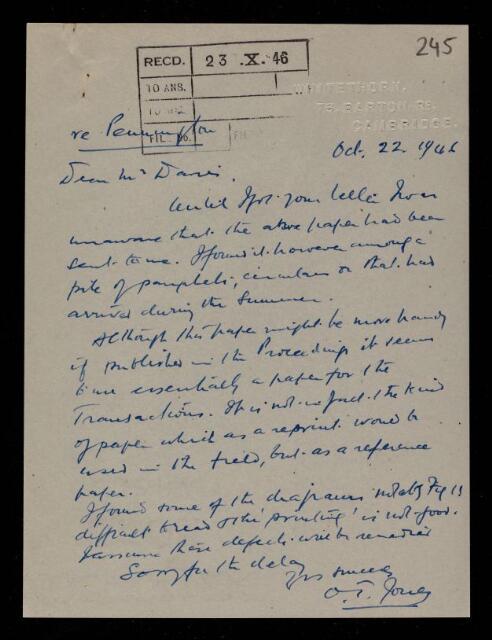 245
RECD. 23 .X. 46
TO ANS.
FILE
WHITETHORN,
75, BARTON RD.
CAMBRIDGE.
re Pennington
Oct. 22. 1946
Dear Mr Davies.
Until I got your letter I was
unaware that the above paper had been
sent to me. I found it however among a
pile of pamphlets, circulars or that had
arrived during the Summer.
Although this paper might be more handy
if published in the Proceedings it seems
to me essentially a paper for the
Transactions. It is not in fact the kind
of paper which as a reprint would be
used in the field, but as a reference
paper.
I found some of the diagrams notably Fig 13
difficult to read & the 'printing' is not good.
I assume these defects will be remedied
Sorry for the delay
Yrs sincerely
O. T. Jones